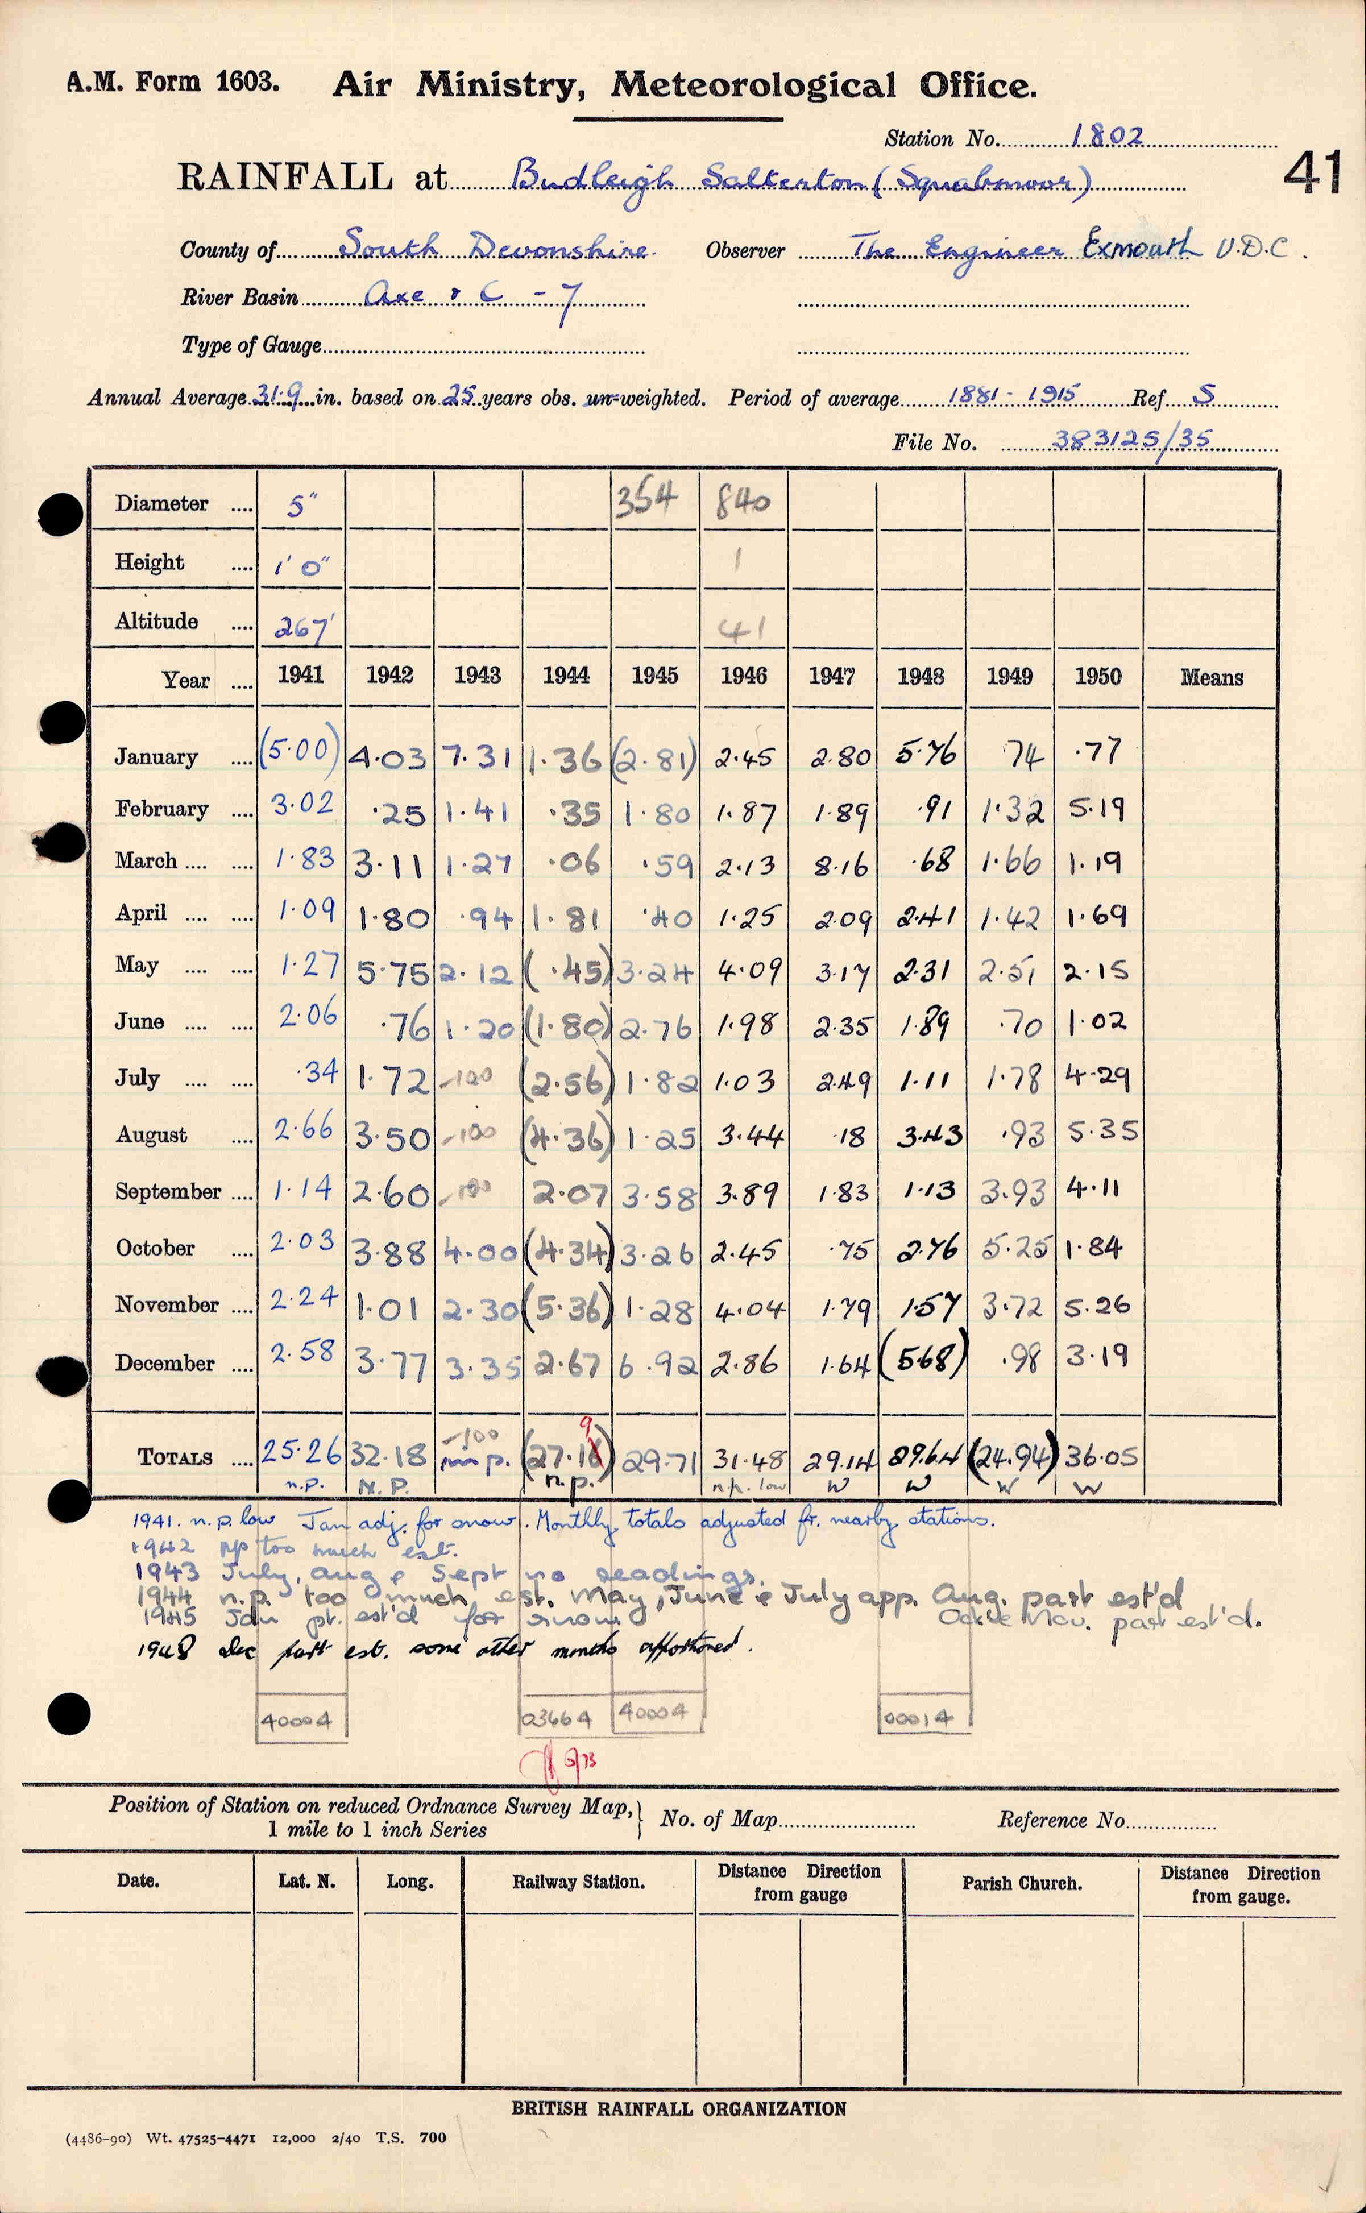 A.M. Form 1603. Air Ministry, Meteorological Office.
Station No. 1802
41
RAINFALL at Budleigh Salterton (Squabmoor)
County of South Devonshire Observer The Engineer Exmouth U.D.C.
River Basin Axe & C - 7
Type of Gauge
Annual Average 31.9 in. based on 25 years obs. un-weighted. Period of average 1881 - 1915 Ref S
File No. 383125/35
Diameter .... 5" 354 840
Height .... 1' 0" 1
Altitude .... 267' 41
Year .... 1941 1942 1943 1944 1945 1946 1947 1948 1949 1950 Means
January .... (5.00) 4.03 7.31 1.36 (2.81) 2.45 2.80 5.76 .74 .77
February .... 3.02 .25 1.41 .35 1.80 1.87 1.89 .91 1.32 5.19
March .... .... 1.83 3.11 1.27 .06 .59 2.13 8.16 .68 1.66 1.19
April .... .... 1.09 1.80 .94 1.81 .40 1.25 2.09 2.41 1.42 1.69
May .... .... 1.27 5.75 2.12 (.45) 3.24 4.09 3.17 2.31 2.51 2.15
June .... .... 2.06 .76 1.20 (1.80) 2.76 1.98 2.35 1.89 .70 1.02
July .... .... .34 1.72 -100 (2.56) 1.82 1.03 2.49 1.11 1.78 4.29
August .... 2.66 3.50 -100 (4.36) 1.25 3.44 .18 3.43 .93 5.35
September .... 1.14 2.60 -100 2.07 3.58 3.89 1.83 1.13 3.93 4.11
October .... 2.03 3.88 4.00 (4.34) 3.26 2.45 .75 2.76 5.25 1.84
November .... 2.24 1.01 2.30 (5.36) 1.28 4.04 1.79 1.57 3.72 5.26
December .... 2.58 3.77 3.35 2.67 6.92 2.86 1.64 (5.68) .98 3.19
9
-100
TOTALS .... 25.26 32.18 n.p. (27.18) 29.71 31.48 29.14 29.64 (24.94) 36.05
n.p. N.P. n.p. n.p. low W W W W
1941. n.p. low Jan adj. for snow. Monthly totals adjusted fr. nearby stations.
1942 np too much est.
1943 July, Aug & Sept no readings.
1944 n.p. too much est. May, June & July app. Aug. part est'd
Oct & Nov. part est'd.
1945 Jan pt. est'd for snow
1948 Dec part est. some other months apportioned.
40004 03664 40004 00014
6/73
Position of Station on reduced Ordnance Survey Map, } No. of Map Reference No.
1 mile to 1 inch Series
Date. Lat. N. Long. Railway Station. Distance from gauge Direction Parish Church. Distance Direction from gauge.
BRITISH RAINFALL ORGANIZATION
(4486-90) Wt. 47525-4471 12,000 2/40 T.S. 700